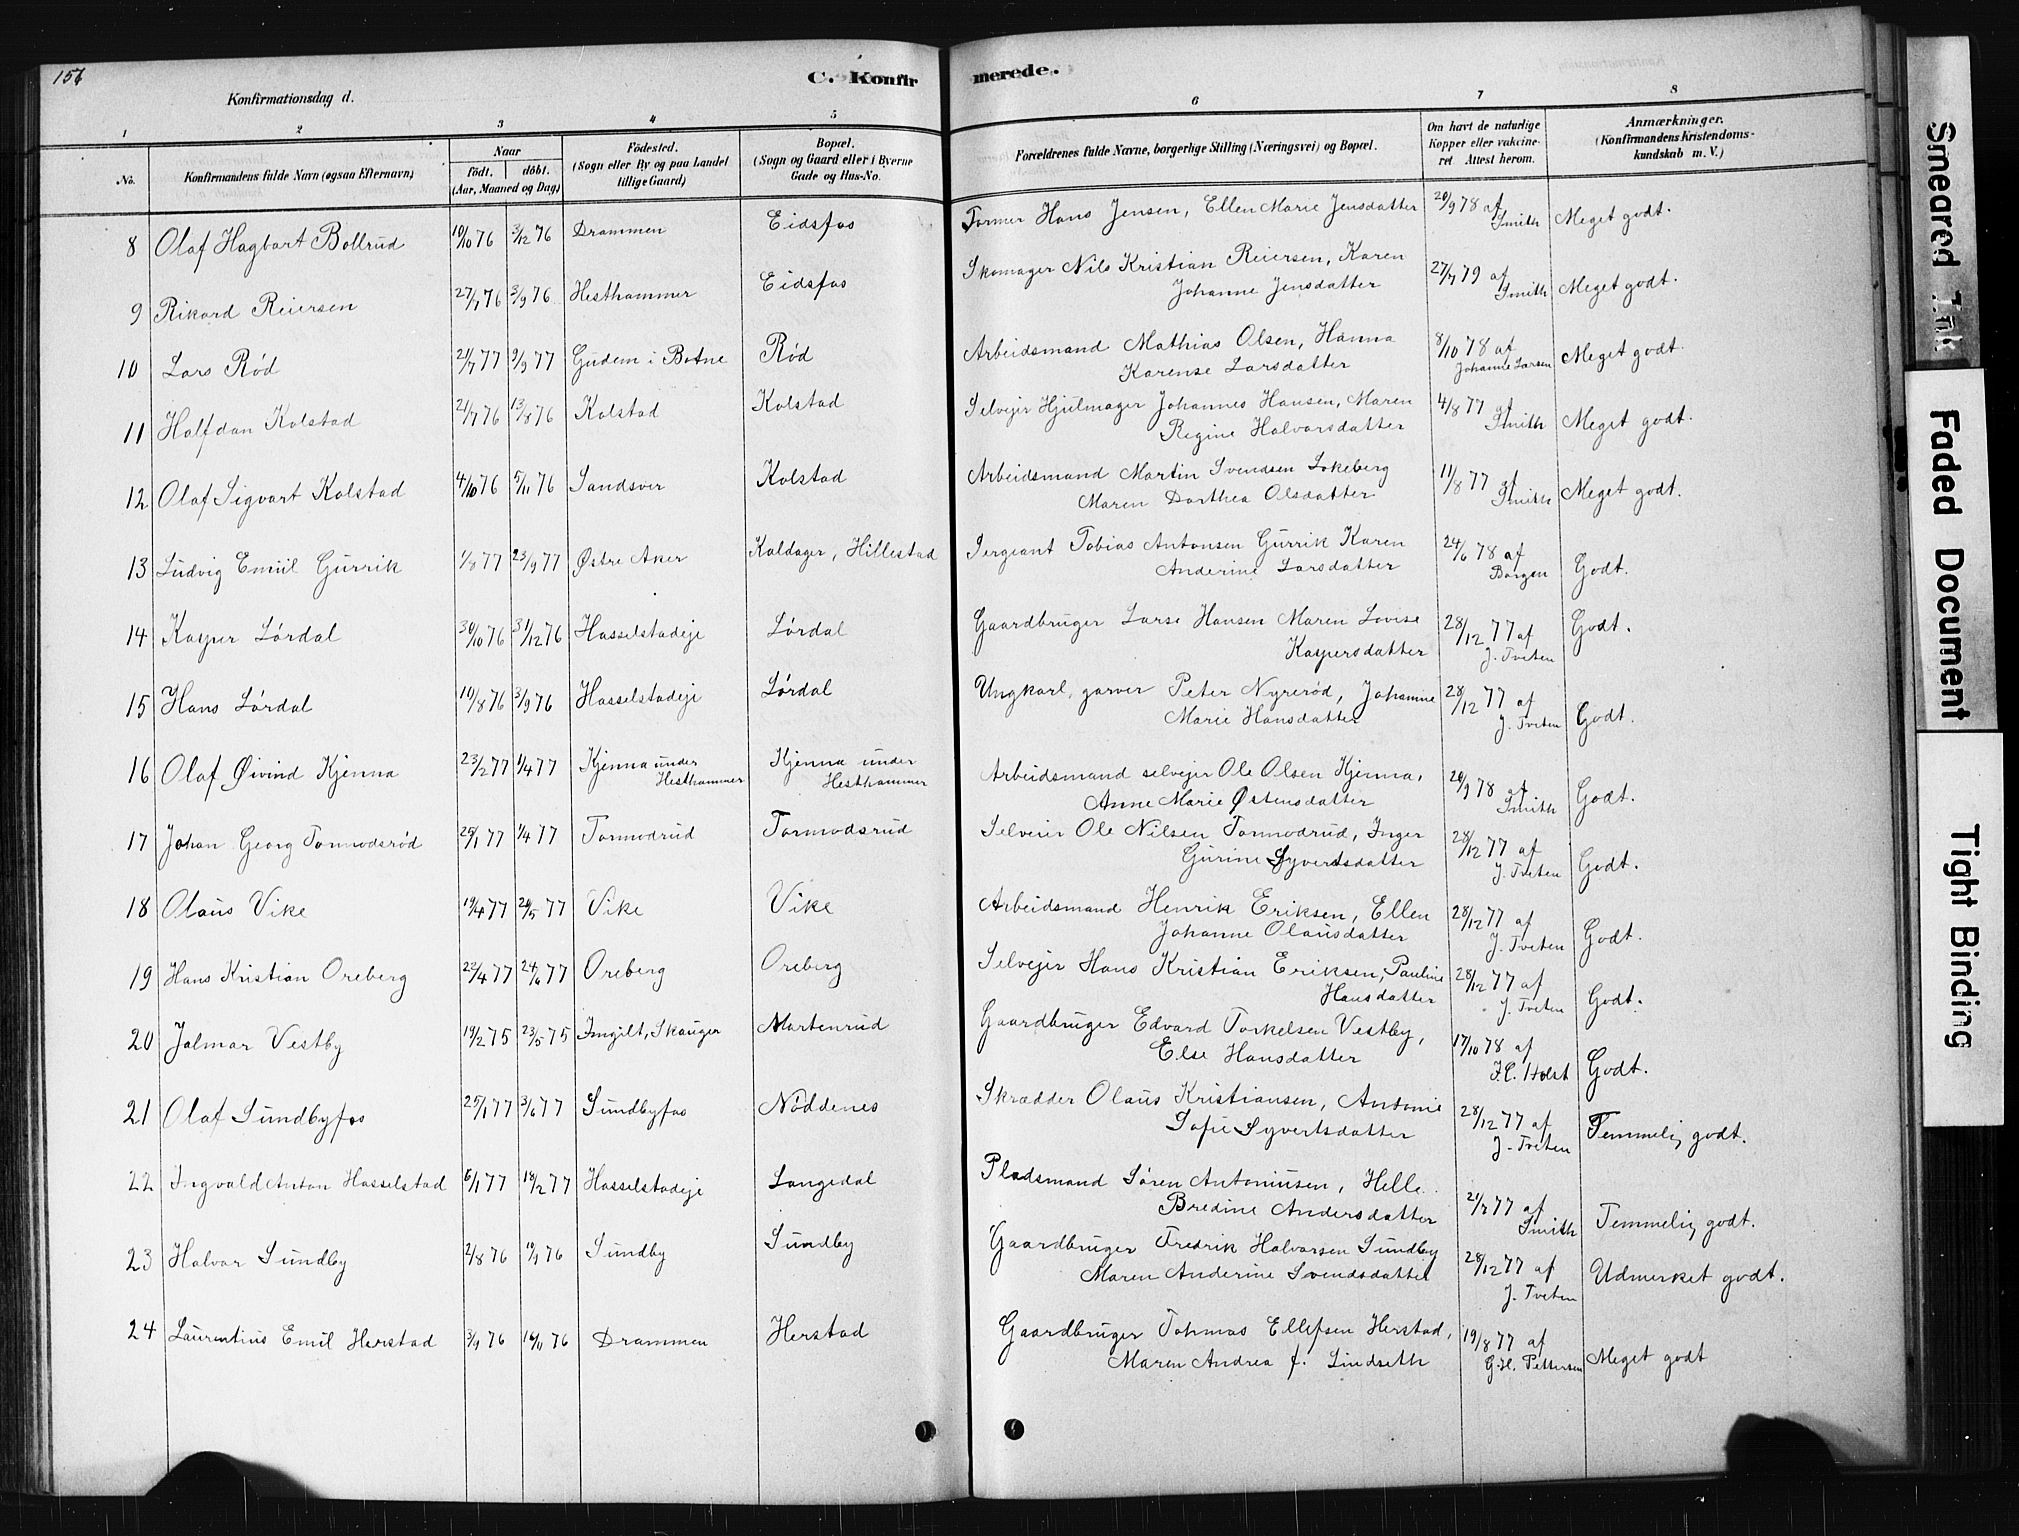 156
C. Konfir
merede.
Konfirmationsdag d.
1 2 3 4 5 6 7 8
No. Konfirmandens fulde Navn (ogsaa Efternavn) Naar født. døbt. (Aar, Maaned og Dag) Fødested. (Sogn eller By og paa Landet tillige Gaard) Bopæl. (Sogn og Gaard eller i Byerne Gade og Hus-No. Forældrenes fulde Navne, borgerlige Stilling (Næringsvei) og Bopæl. Om havt de naturlige Kopper eller vakcineret. Attest herom. Anmærkninger. (Konfirmandens Kristendomskundskab m. V.)
8 Olaf Hagbart Bollrud 10/10 76 3/12 76 Drammen Eidsfos Former Hans Jensen, Ellen Marie Jensdatter 20/9 78 af Smith Meget godt.
9 Rikard Reiersen 27/7 76 3/9 76 Hesthammer Eidsfos Skomager Nils Kristian Reiersen, Karen
Johanne Jensdatter 27/7 79 af Smith Meget godt.
10 Lars Rød 21/7 77 9/9 77 Gudem i Botne Rød Arbeidsmand Mathias Olsen, Hanna
Karense Larsdatter 8/10 78 af Johanne Larsen Meget godt.
11 Halfdan Kolstad 21/7 76 13/8 76 Kolstad Kolstad Selvejer Hjulmager Johannes Hansen, Maren
Regine Halvorsdatter 4/8 77 af Smith Meget godt.
12 Olaf Sigvart Kolstad 4/10 76 5/11 76 Sandsver Kolstad Arbeidsmand Martin Svendsen Lokeberg
Maren Dorthea Olsdatter 11/8 77 af Smith Meget godt.
13 Ludvig Emiil Gurrik 1/8 77 23/9 77 Østre Aker Kaldager, Hillestad Sergeant Tobias Antonsen Gurrik Karen
Anderine Larsdatter 24/6 78 af Borgen Godt.
14 Kasper Lørdal 30/10 76 31/12 76 Hasselstadeje Lørdal Gaardbruger Larse Hansen Maren Lovise
Kaspersdatter 28/12 77 af J. Tveten Godt.
15 Hans Lørdal 10/8 76 3/9 76 Hasselstadeje Lørdal Ungkarl, garver Peter Nyrerød, Johanne
Marie Hansdatter 28/12 77 af J. Tveten Godt.
16 Olaf Øivind Kjenna 23/2 77 1/4 77 Kjenna under Hesthammer Kjenna under Hesthammer Arbeidsmand selvejer Ole Olsen Kjenna,
Anne Marie Østensdatter 20/9 78 af Smith Godt.
17 Johan Georg Tormodsrød 25/1 77 1/4 77 Tormodrud Tormodsrud Selveier Ole Nilsen Tormodrud, Inger
Gurine Syvertsdatter 28/12 77 af J. Tveten Godt.
18 Olaus Vike 19/4 77 20/5 77 Vike Vike Arbeidsmand Henrik Eriksen, Ellen
Johanne Olausdatter 28/12 77 af J. Tveten Godt.
19 Hans Kristian Oreberg 22/4 77 24/6 77 Oreberg Oreberg Selvejer Hans Kristian Eriksen, Pauline
Hansdatter 28/12 77 af J. Tveten Godt.
20 Jalmar Vestby 19/2 75 23/5 75 Imgilt, Skauger Mortenrud Gaardbruger Edvard Torkelsen Vestby,
Else Hansdatter 17/10 78 af Holst Godt.
21 Olaf Sundbyfos 25/1 77 3/6 77 Sundbyfos Nøddenes Skrædder Olaus Kristiansen, Antonie
Sofie Syvertsdatter 28/12 77 af J. Tveten Temmelig godt.
22 Ingvald Anton Hasselstad 6/1 77 18/2 77 Hasselstadeje Langedal Pladsmand Søren Antoniusen, Helle
Bredine Andersdatter 21/7 77 af Smith Temmelig godt.
23 Halvor Sundby 2/8 76 76 Sundby Sundby Gaardbruger Fredrik Halvorsen Sundby
Maren Anderine Svendsdatter 28/12 77 af J. Tveten Udmerket godt.
24 Laurentius Emil Herstad 3/9 76 19/11 76 Drammen Herstad Gaardbruger Tohmas Ellefsen Herstad,
Maren Andrea f. Lindseth 19/8 77 af G. H. Pettersen Meget godt
Smeared Ink
Faded Document
Tight Binding